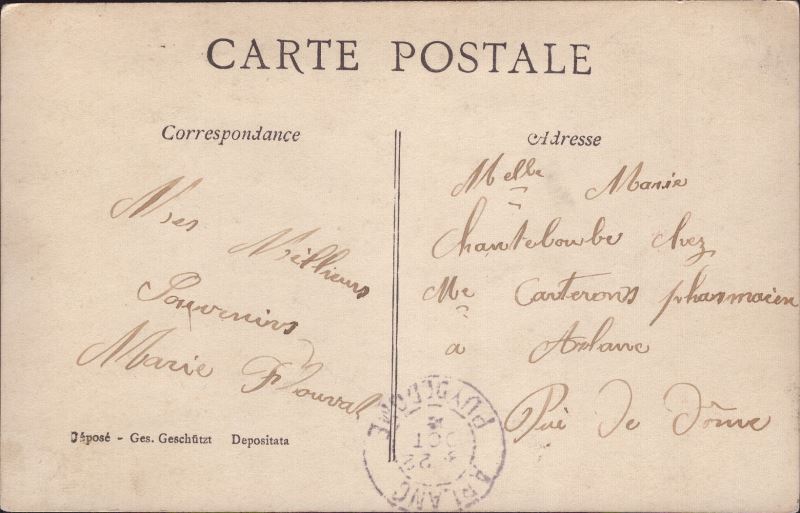 CARTE POSTALE
Correspondance
Mes Meillieurs
Souvenirs
Marie
Déposé - Ges. Geschützt Depositata
Adresse
Melle Marie
Chanteloube chez
Me Carterons pharmacien
a Arlanc
Pui De Dôme
ARLANC
PUY DE DOME
22
OCT